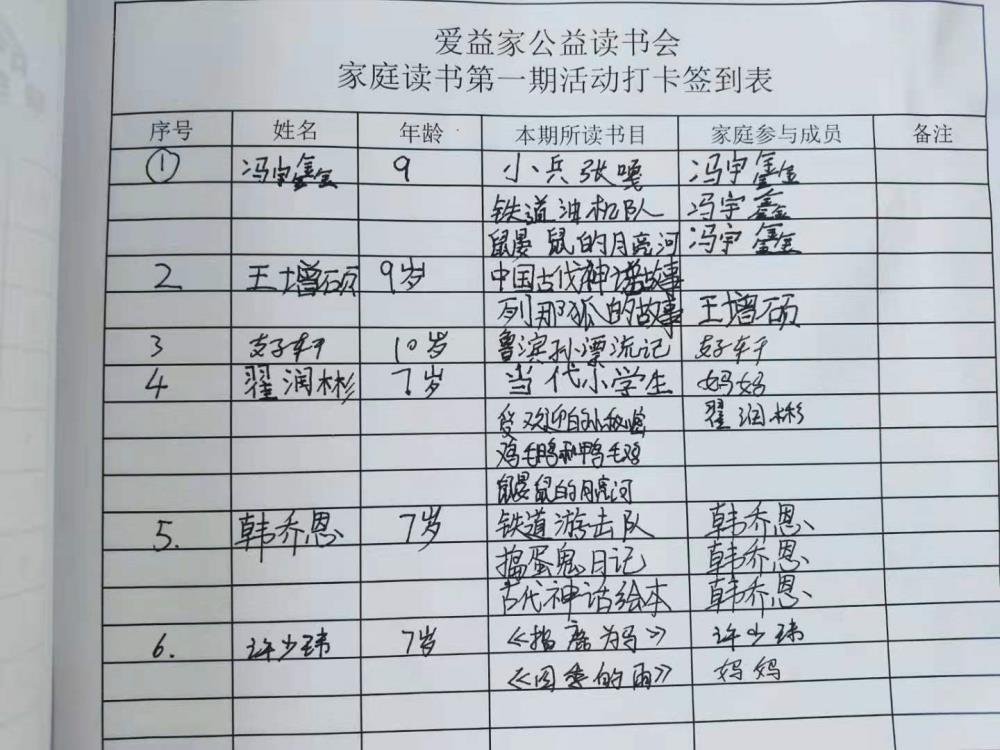 爱益家公益读书会
家庭读书第一期活动打卡签到表
序号 姓名 年龄 本期所读书目 家庭参与成员 备注
① 冯宇鑫 9 小兵张嘎 冯宇鑫
铁道游机队 冯宇鑫
鼹鼠的月亮河 冯宇鑫
2 王增硕 9岁 中国古代神话故事
列那狐的故事 王增硕
3 10岁 鲁滨孙漂流记
4 翟润彬 7岁 当代小学生 妈妈
受欢迎的 翟润彬
鸡毛鸭和鸭毛鸡
鼹鼠的月亮河
5. 韩乔恩 7岁 铁道游击队 韩乔恩
捣蛋鬼日记 韩乔恩
古代神话绘本 韩乔恩
6. 许少玮 7岁 《指鹿为马》 许少玮
《四季的雨》 妈妈